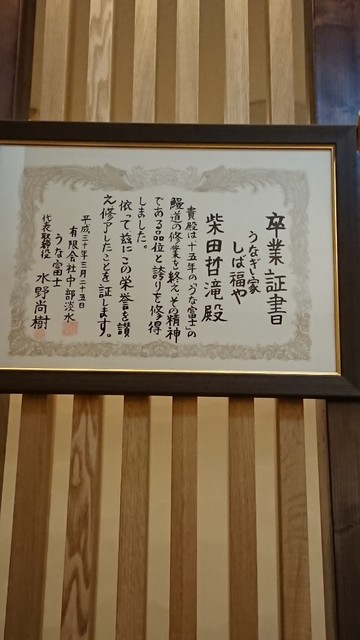 卒業証書
うなぎ家
しば福や
柴田哲滝殿
貴殿は十五年の「うな富士」の
鰻道の修業を終え、その精神
である品位と誇りを修得
しました。
依って茲にこの栄誉を讃
え修了したことを証します。
平成三十年三月二十五日
有限会社中部淡水
うな富士
代表取締役 水野尚樹